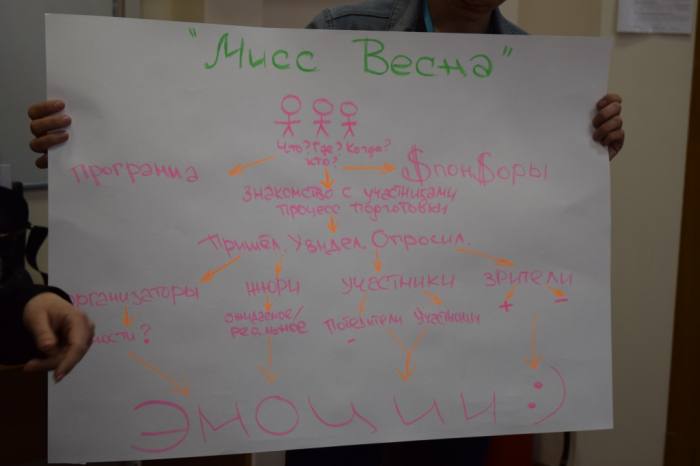 "Мисс Весна"
Что? Где? Когда?
Кто?
программа
$пон$оры
знакомство с участниками
процесс подготовки
Пришёл. Увидел. Опросил.
организаторы
жюри
участники
зрители
ожидаемое/
реальное
победители
участники
+
-
-
ЭМОЦИИ :)